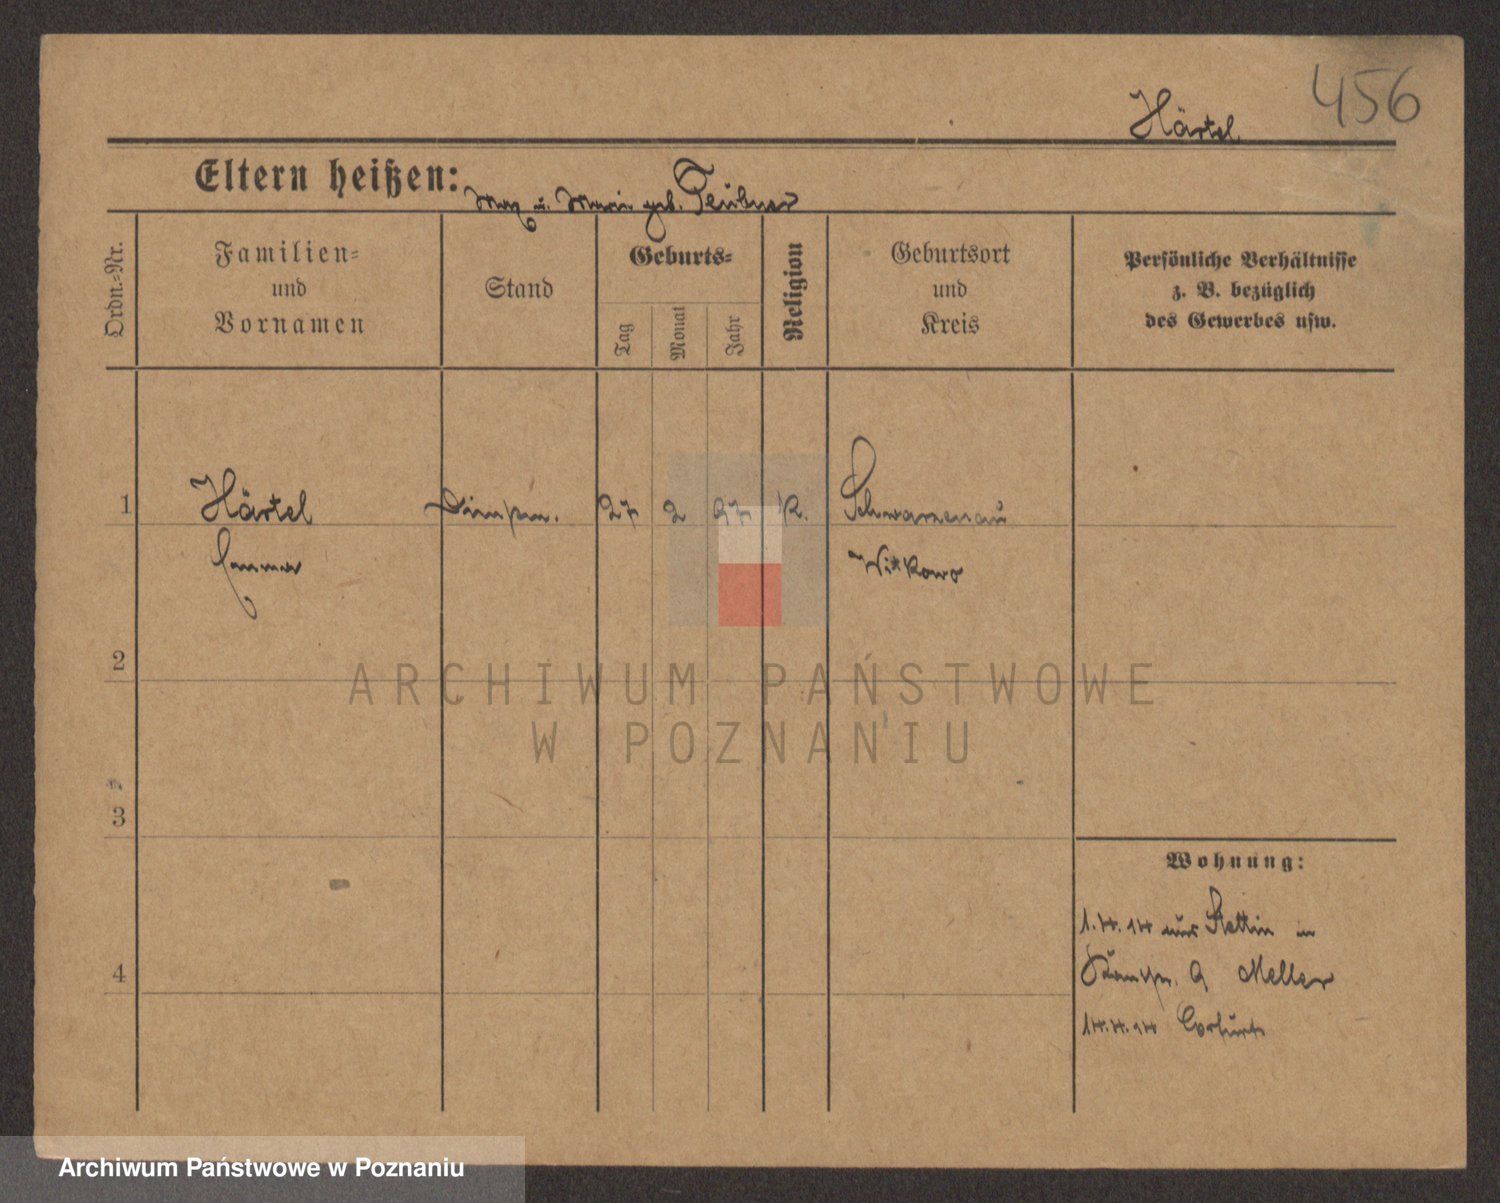 456
Härtel
Eltern heißen: Max u. Marie geb. Teubner
Ordn.-Nr.
Familien-
und
Vornamen
Stand
Geburts-
Tag
Monat
Jahr
Religion
Geburtsort
und
Kreis
Persönliche Verhältnisse
z. B. bezüglich
des Gewerbes usw.
1 Härtel 27 2 97 K. Schwarzenau
Emma Witkowo
2
3
4
Wohnung:
1.4.14 aus Stettin in
9 Meller
14.4.14 Erfurt
ARCHIWUM PAŃSTWOWE
W POZNANIU
Archiwum Państwowe w Poznaniu